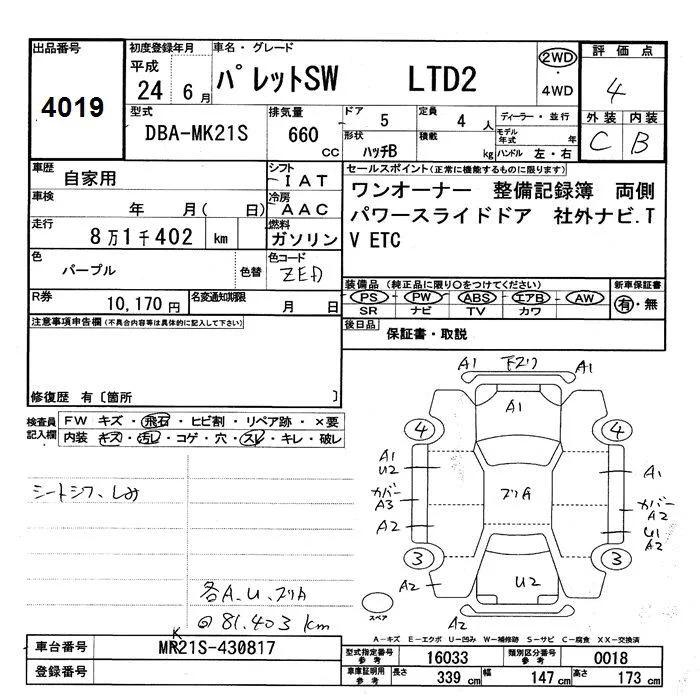 出品番号
4019
初度登録年月
平成
24 6 月
車名・グレード
パレットSW LTD2
2WD
・
4WD
評価点
4
外装 内装
C B
型式
DBA-MK21S
排気量
660
CC
ドア
5
定員
4 人
形状
ハッチB
積載
kg
ディーラー・並行
モデル年式 年
ハンドル 左・右
車歴
自家用
シフト
IAT
車検
年 月( 日)
冷房
AAC
走行
8万1千402 km
燃料
ガソリン
色
パープル
色替
色コード
ZED
R券
10,170 円
名変通知期限
月 日
セールスポイント(正常に機能するものに限ります)
ワンオーナー 整備記録簿 両側
パワースライドドア 社外ナビ.T
V ETC
装備品(純正品に限り○をつけてください)
PS・PW・ABS・エアB・AW
SR ナビ TV カワ
新車保証書
有・無
後日品
保証書・取説
注意事項申告欄(不具合内容等は具体的に記入して下さい)
修復歴 有〔箇所 〕
検査員
記入欄
FW キズ・飛石・ヒビ割・リペア跡・×要
内装 キズ・汚レ・コゲ・穴・スレ・キレ・破レ
シートシワ、しみ
各A、U、フリA
@81.403 km
A1 下スリ A1
A1
4 4
A1
U2
カバー
A3
A2
フリA
A1
カバー
A2
U1
A2
3 3
A2
U2
A2
スペア
A-キズ E-エクボ U-凹み W-補修跡 S-サビ C-腐食 XX-交換済
車台番号
MR21S-430817
K
登録番号
型式指定番号
参考
16033
類別区分番号
参考
0018
車庫証明用
参考
長さ
339 cm
幅
147 cm
高さ
173 cm